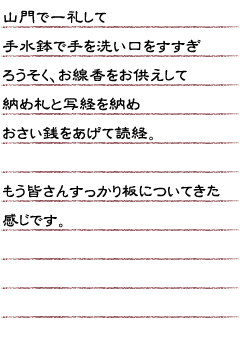 山門で一礼して
手水鉢で手を洗い口をすすぎ
ろうそく、お線香をお供えして
納め札と写経を納め
おさい銭をあげて読経。
もう皆さんすっかり板についてきた
感じです。